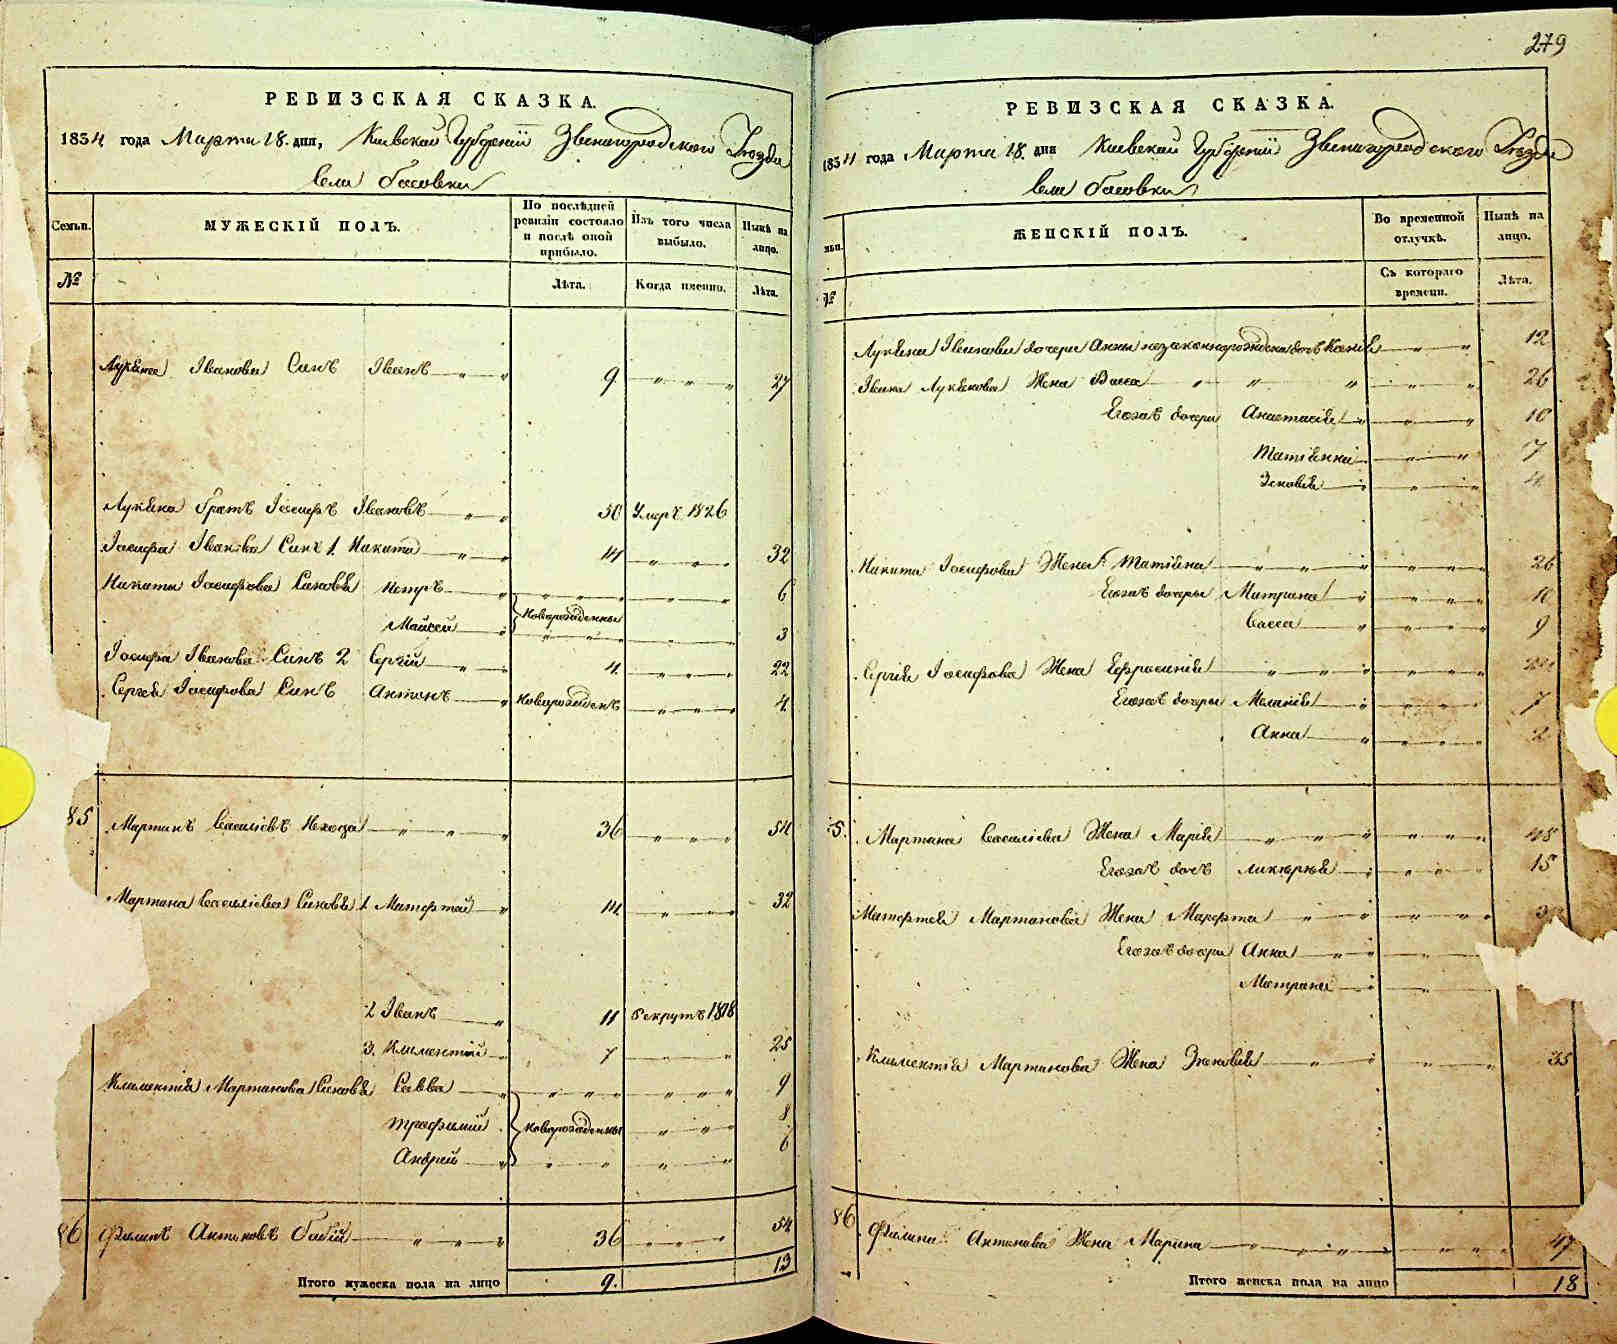 279
РЕВИЗСКАЯ СКАЗКА.
1834 года Марта 18. дня, Киевской Губернiи Звенигородского Уѣзда
Села Басовки
Семьи.
МУЖЕСКIЙ ПОЛЪ.
По послѣдней ревизiи состояло и послѣ оной прибыло.
Изъ того числа выбыло.
Нынѣ на лицо.
№
Лѣта.
Когда именно.
Лѣта.
Лукяна Iванова Синъ Iванъ 9 27
Лукяна братъ Iосифъ Iвановъ 50 Умеръ 1826
Iосифа Iванова Синъ 1. Никита 14 32
Никиты Iосифова Синовя Петръ 6
Мойсей Новорожденны 3
Iосифа Iванова Синъ 2 Сергiй 4 22
Сергея Iосифова Синъ Антонъ Новорожденъ 4
85 Мартинъ Василiевъ Нехода 36 54
Мартина Василiева Синовя 1. Митофтей 14 32
2 Iванъ 11 Рекрутъ 1818
3. Климентiй 7 25
Климентiя Мартинова Синовя Савва 9
Трофимiй Новорожденны 8
Андрей 6
86 Филипъ Антоновъ Бабiй 36 54
Итого мужеска пола на лицо 9. 13
РЕВИЗСКАЯ СКАЗКА.
1834 года Марта 18. дня Киевской Губернiи Звенигородского Уѣзда
Села Басовки
ЖЕНСКIЙ ПОЛЪ.
Во временной отлучкѣ.
Нынѣ на лицо.
№
Съ котораго времени.
Лѣта.
Лукяна Iванова дочери Анны незаконнорожденна дочъ 12
Iвана Лукянова Жена Васса 26
Егожъ дочери Анастасiя 10
Татiянна 7
Зеновiя 4
Никити Iосифова Жена Татiяна 26
Егожъ дочери Митрина 10
Васса 9
Сергiя Iосифова Жена Ефросинiя
Егожъ дочери Меланiя 7
Анна 2
5. Мартина Василiева Жена Марiя 45
Егожъ дочъ Ликерiя 15
Митофтея Мартинова Жена Марфта 3
Егожъ дочери Анна
Митрина
Климентiя Мартинова Жена Зеновiя 35
86 Филипа Антонова Жена Марина 47
Итого женска пола на лицо 18